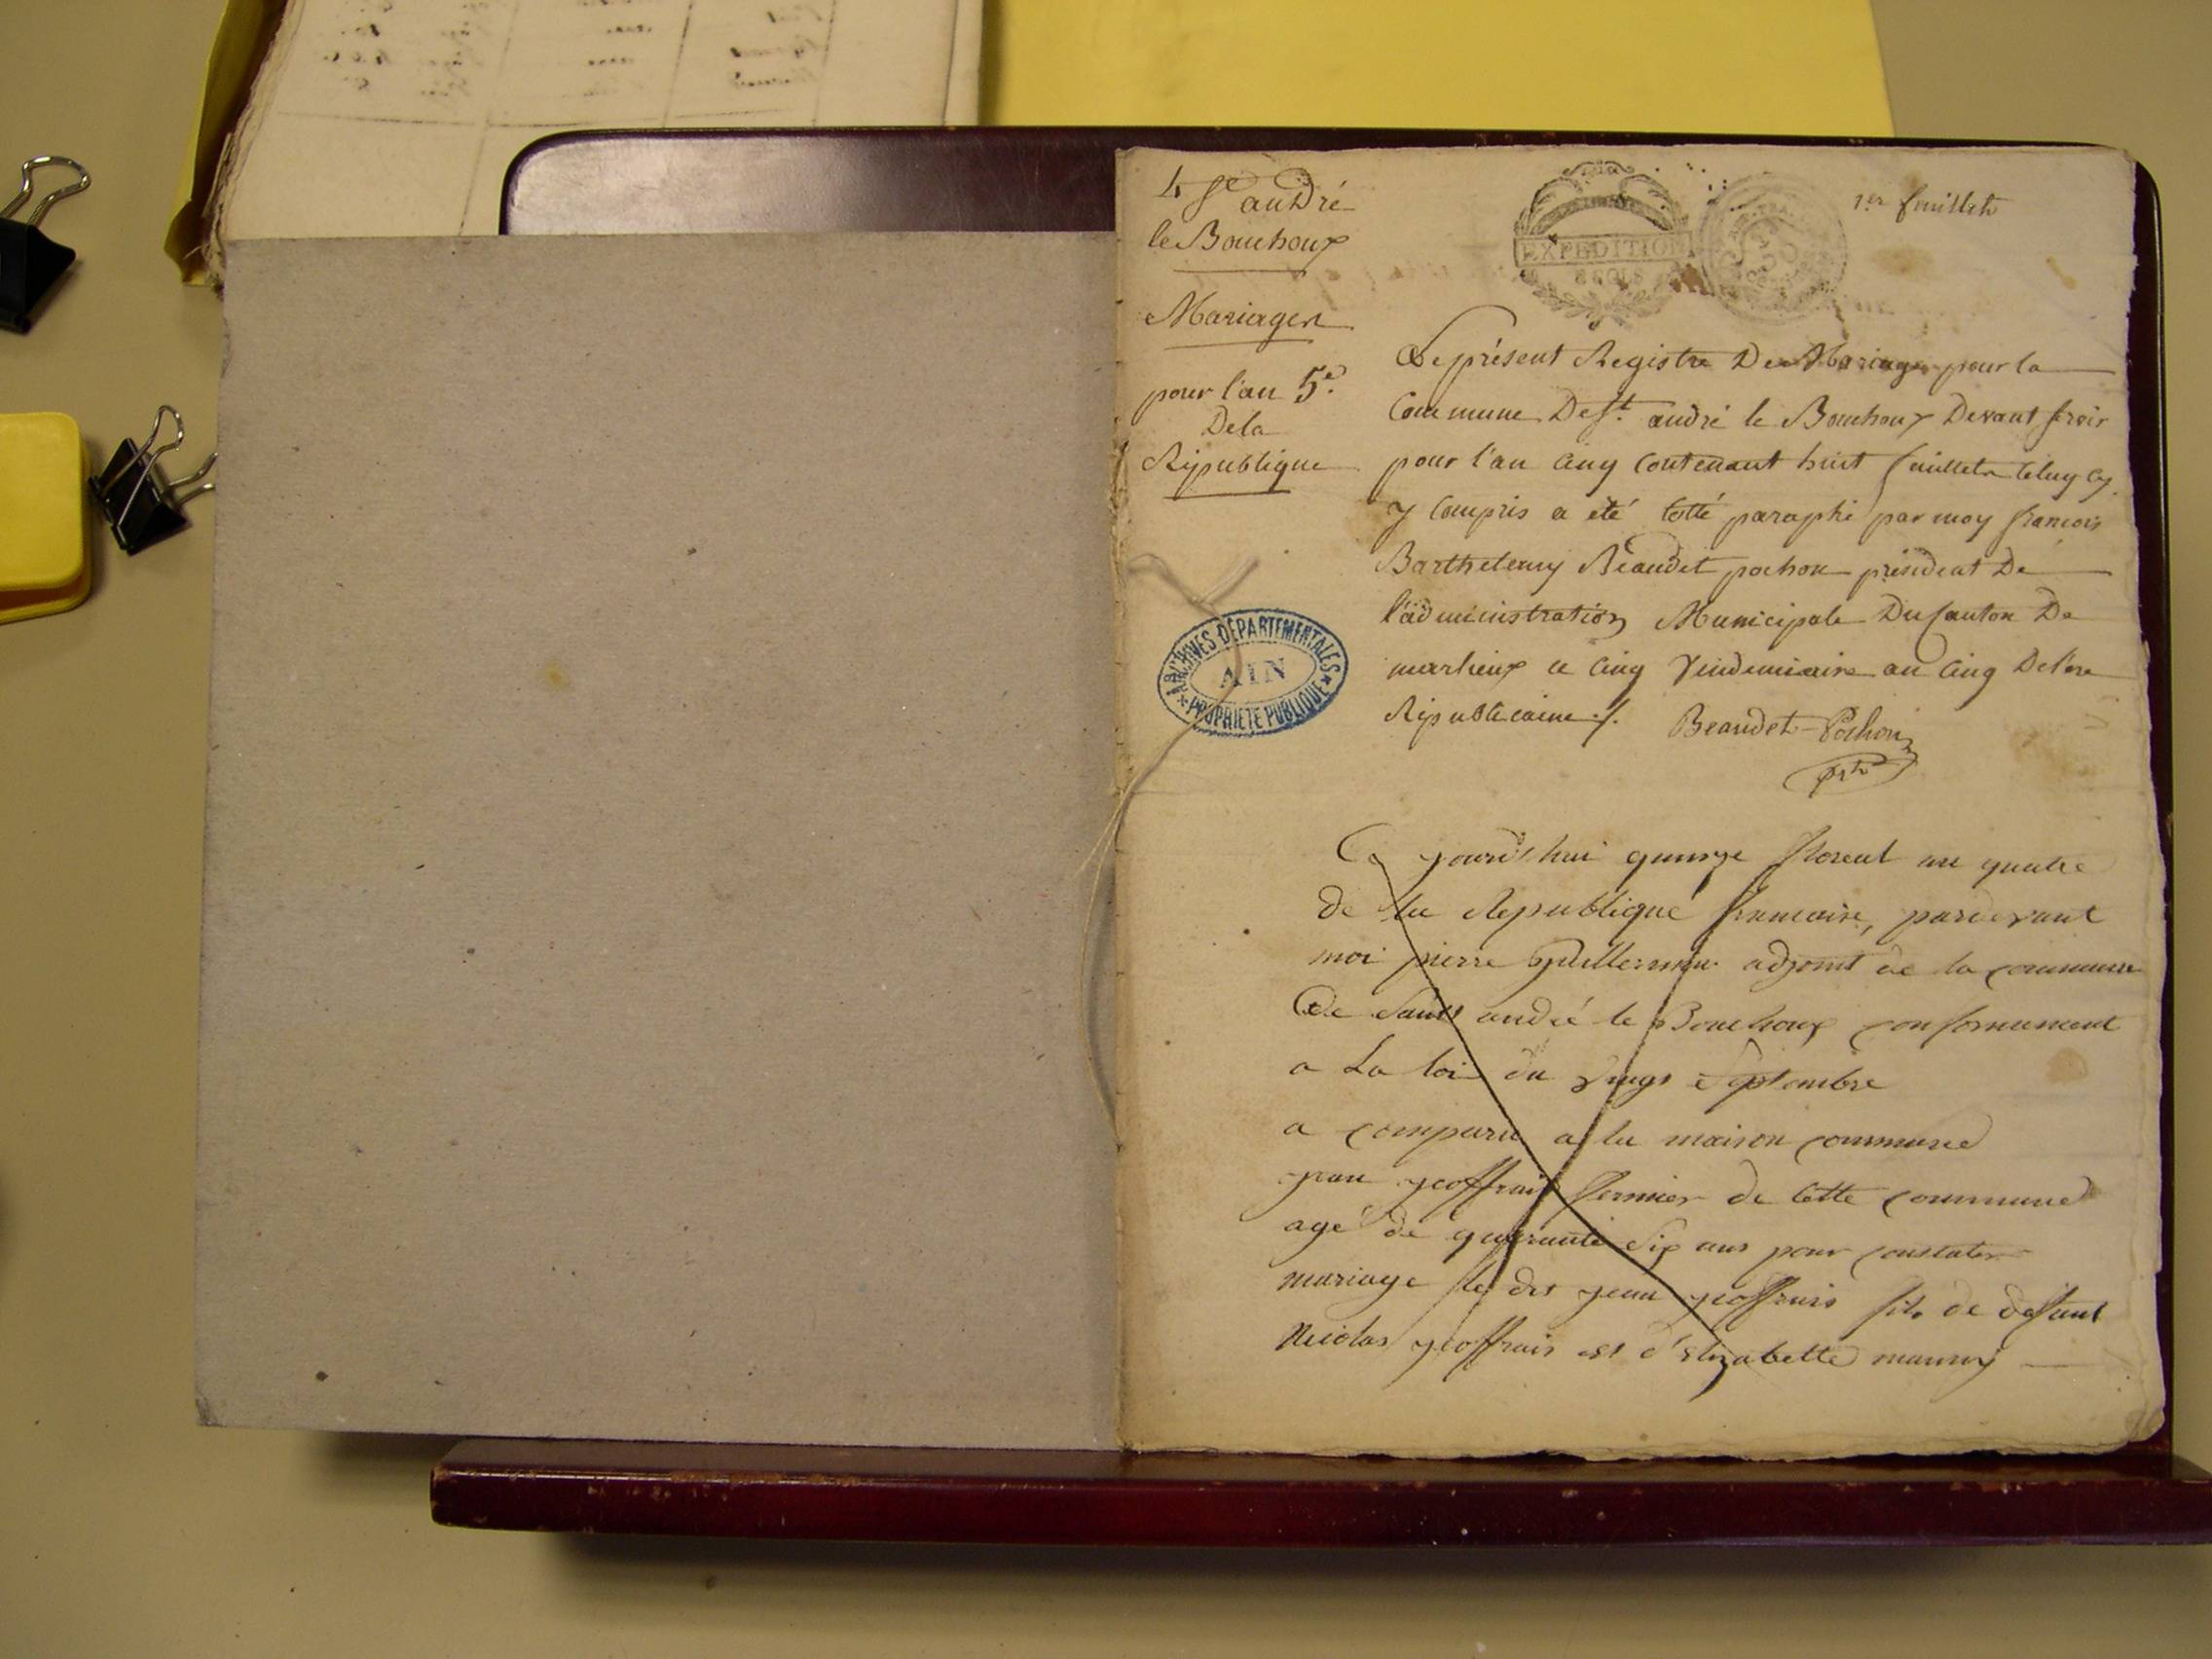 4 St andré
le Bouchoux
Mariages
pour l'an 5e.
De la
République
EXPEDITION
8 SOLS
1er feuillet
Le présent Registre Des Mariages pour la
Commune De St. andré le Bouchoux Devant servir
pour l'an cinq contenant huit feuillets celuy cy
y compris a été cotté paraphé par moy francois
Barthelemy Beaudet pochon président De
l'administration Municipale Du Canton De
marlieux ce cinq Vendemiaire an cinq De l'ère
Républicaine ./.
Beaudet-Pochon
ARCHIVES DÉPARTEMENTALES
AIN
* PROPRIÉTÉ PUBLIQUE *
Ce jourd'hui quinze floreal an quatre
de la Republique francaise, pardevant
moi pierre Guillermin adjoint de la commune
De Saint andré le Bouchoux conformement
a La loi du vingt Septembre
a comparu a la maison commune
jean geoffrais fermier de cette commune
agé de quarante Six ans pour constater
mariage le dit jean geoffrais fils de deffunt
Nicolas geoffrais est d'Elizabette maurry